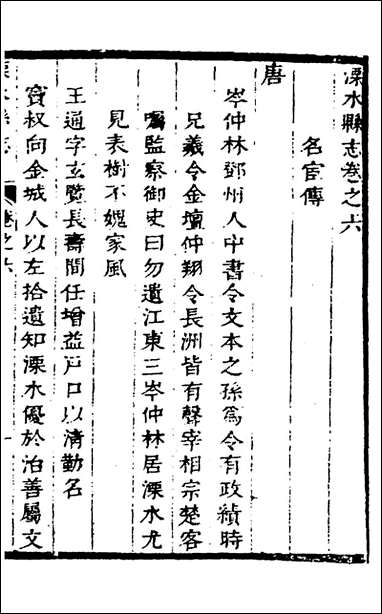 溧水縣志卷之六
名宦傳
唐
岑仲林鄧州人中書令文本之孫爲令有政績時
兄羲令金壇仲翔令長洲皆有聲宰相宗楚客
囑監察御史曰勿遺江東三岑仲林居溧水尤
見表樹不媿家風
王通字玄覽長壽間任增益戸口以清勤名
竇叔向金城人以左拾遺知溧水優於治善屬文
卷之六